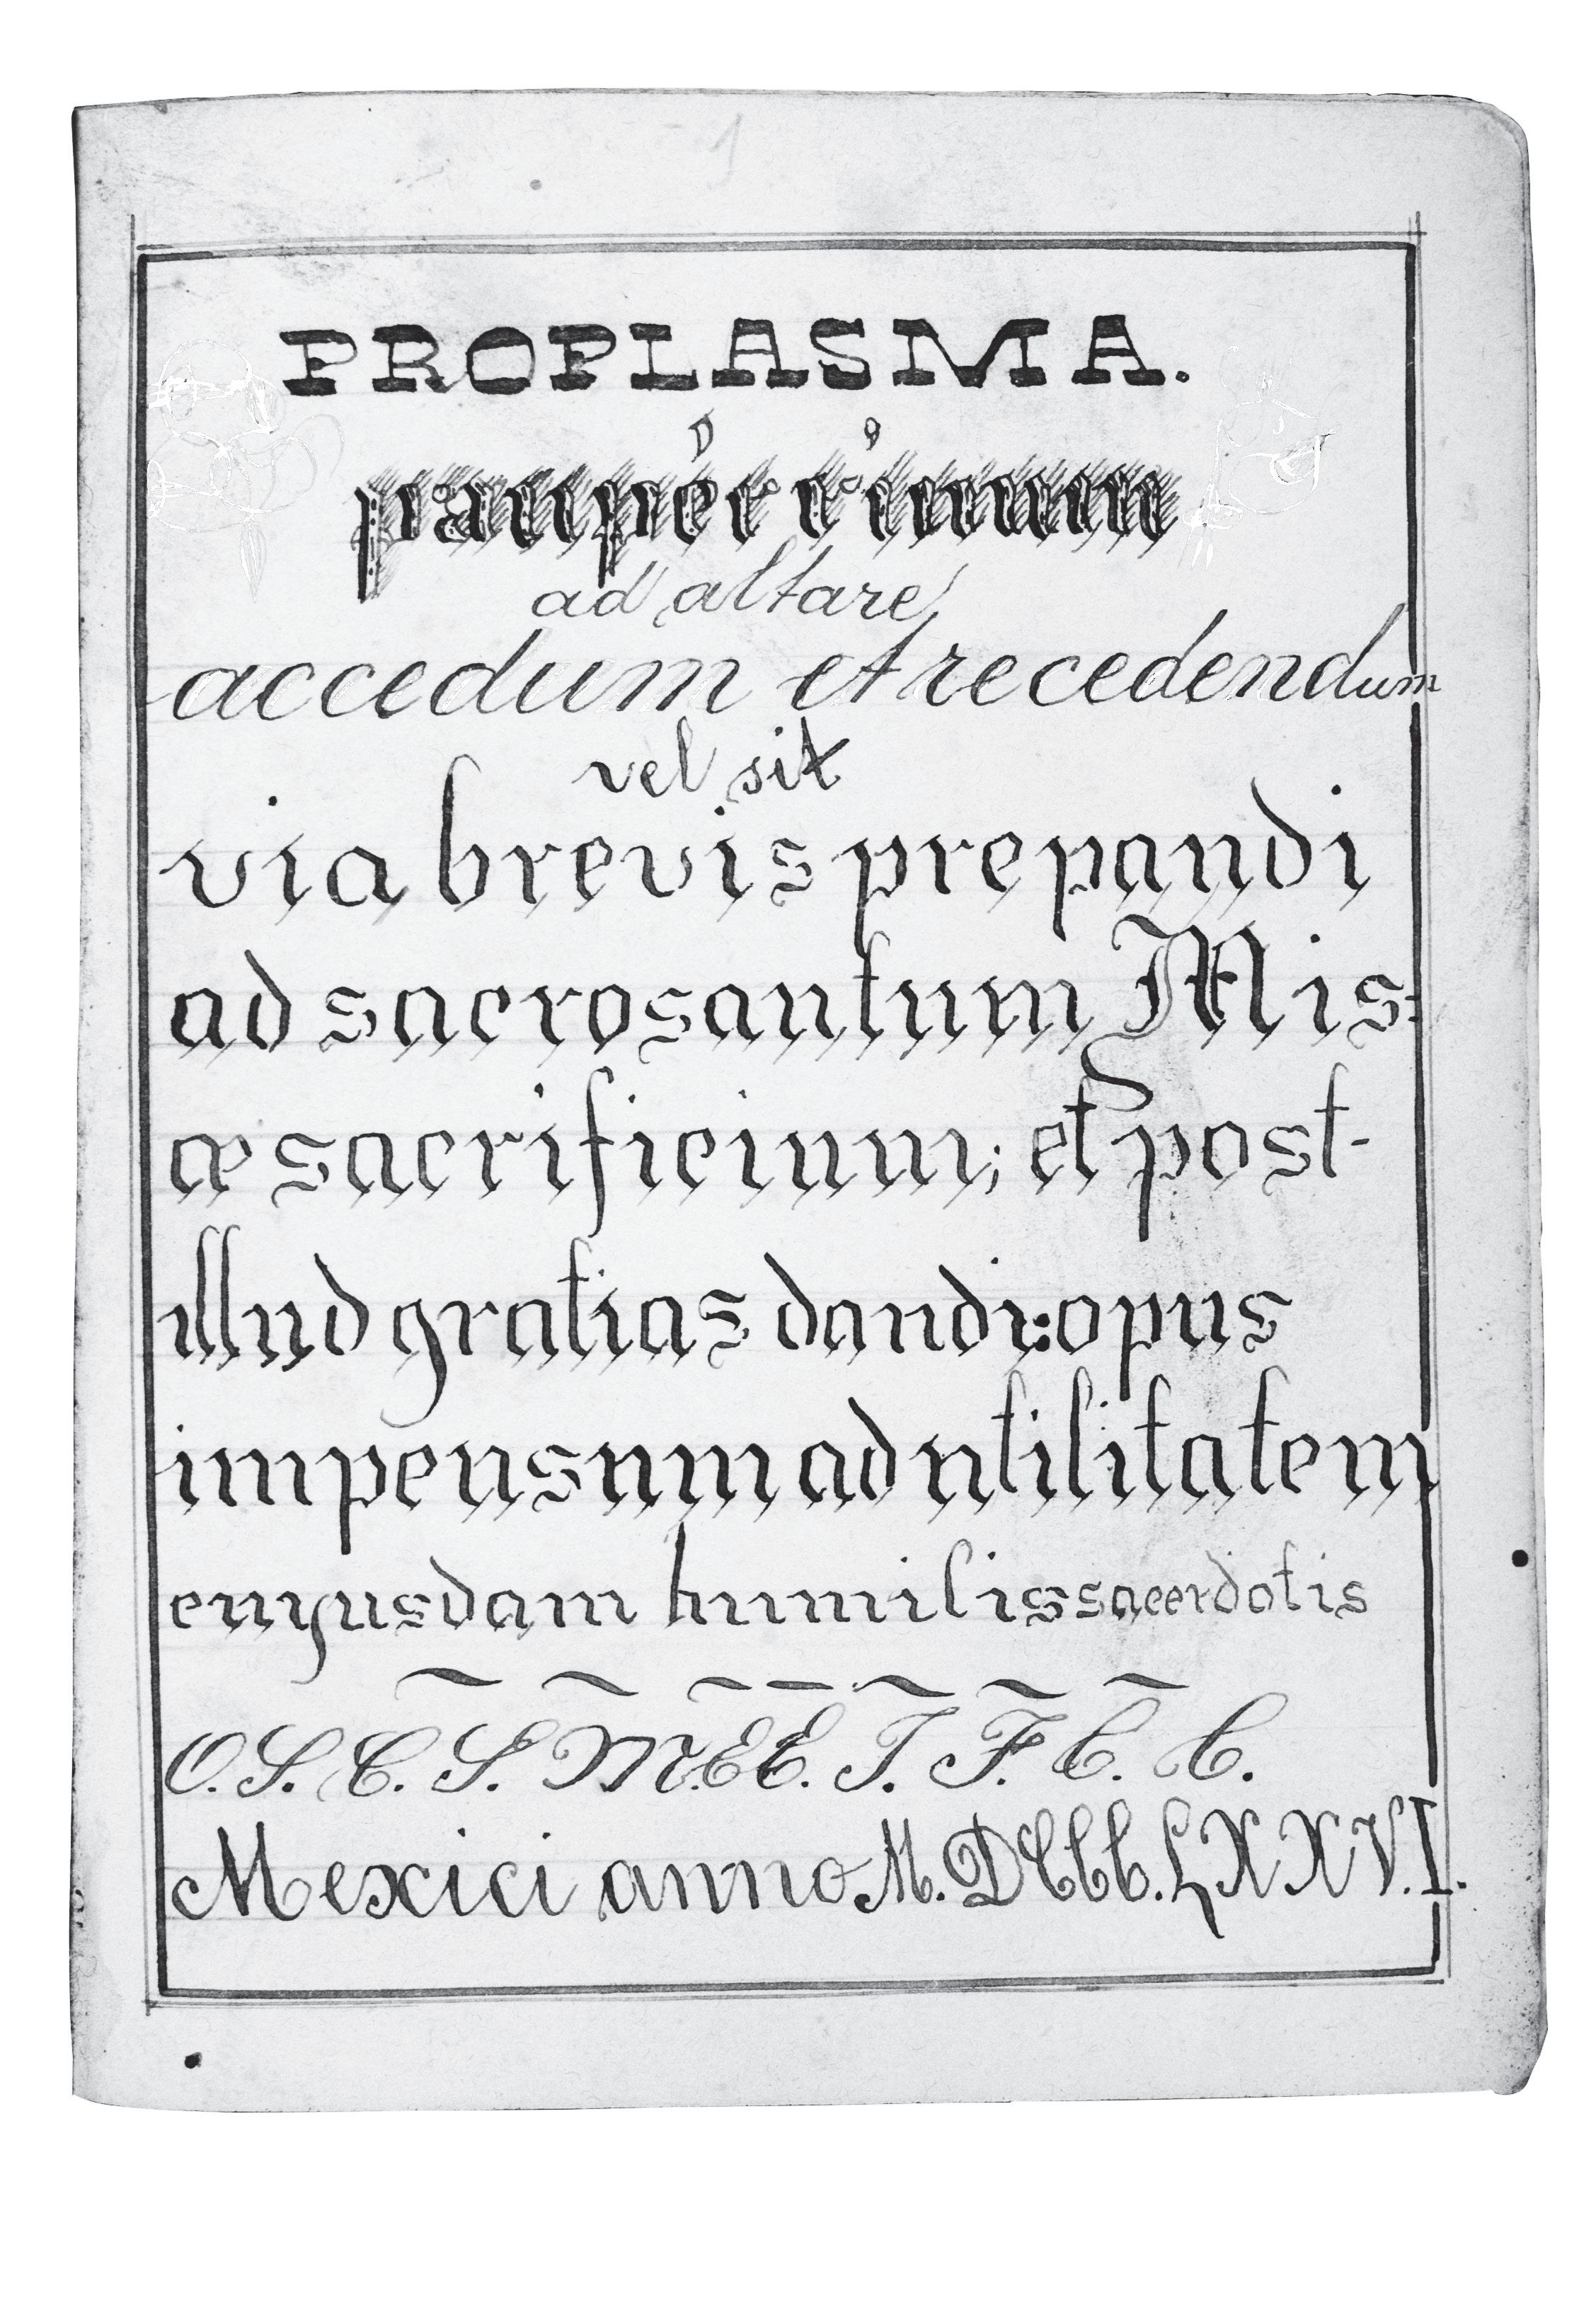 1
PROPLASMA.
ad altare
accedum et recedendum
vel sit
via brevis prepandi
ad sacrosantum Mis-
æ sacrificium; et post-
illud gratias dandi: opus
impensum ad utilitatem
cuyusdam humilis sacerdotis
O. S. C. S. M. E E. J. F. C. C.
Mexici anno M. DCCC. LXXV.I.